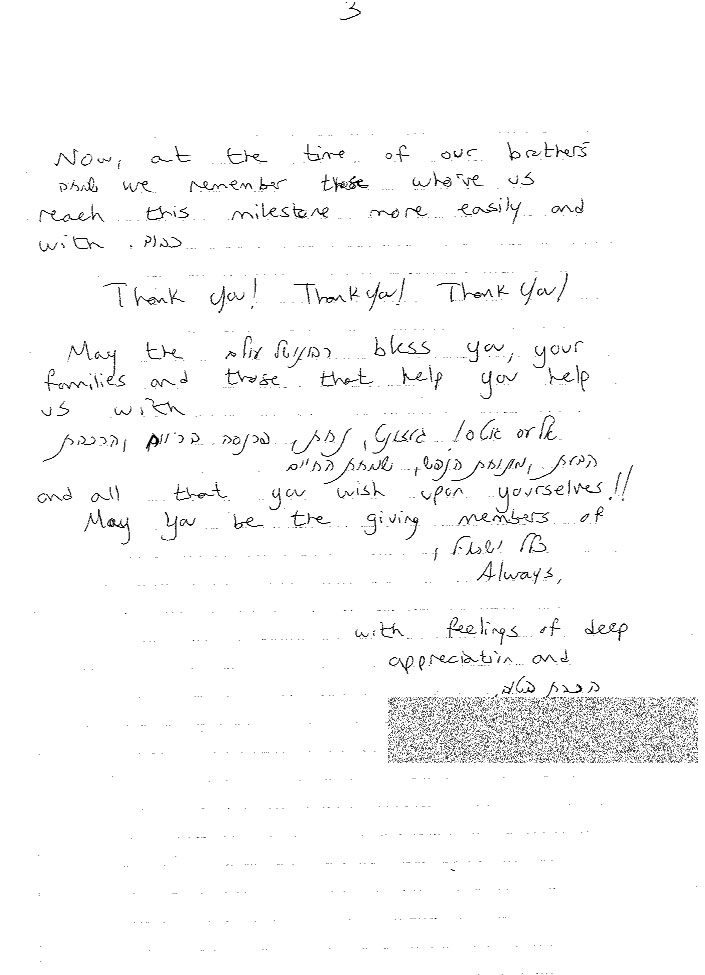 3
Now, at the time of our brother's
שמחה we remember those who've us
reach this milestone more easily and
with כבוד.
Thank you! Thank you! Thank you!
May the רבונו של עולם bless you, your
families and those that help you help
us with
נחת, פרנסה בריוח, והרחבת
הדעת, מנוחת הנפש, שמחת החיים
and all that you wish upon yourselves!!
May you be the giving members of
כלל ישראל,
Always,
with feelings of deep
appreciation and
הכרת הטוב,